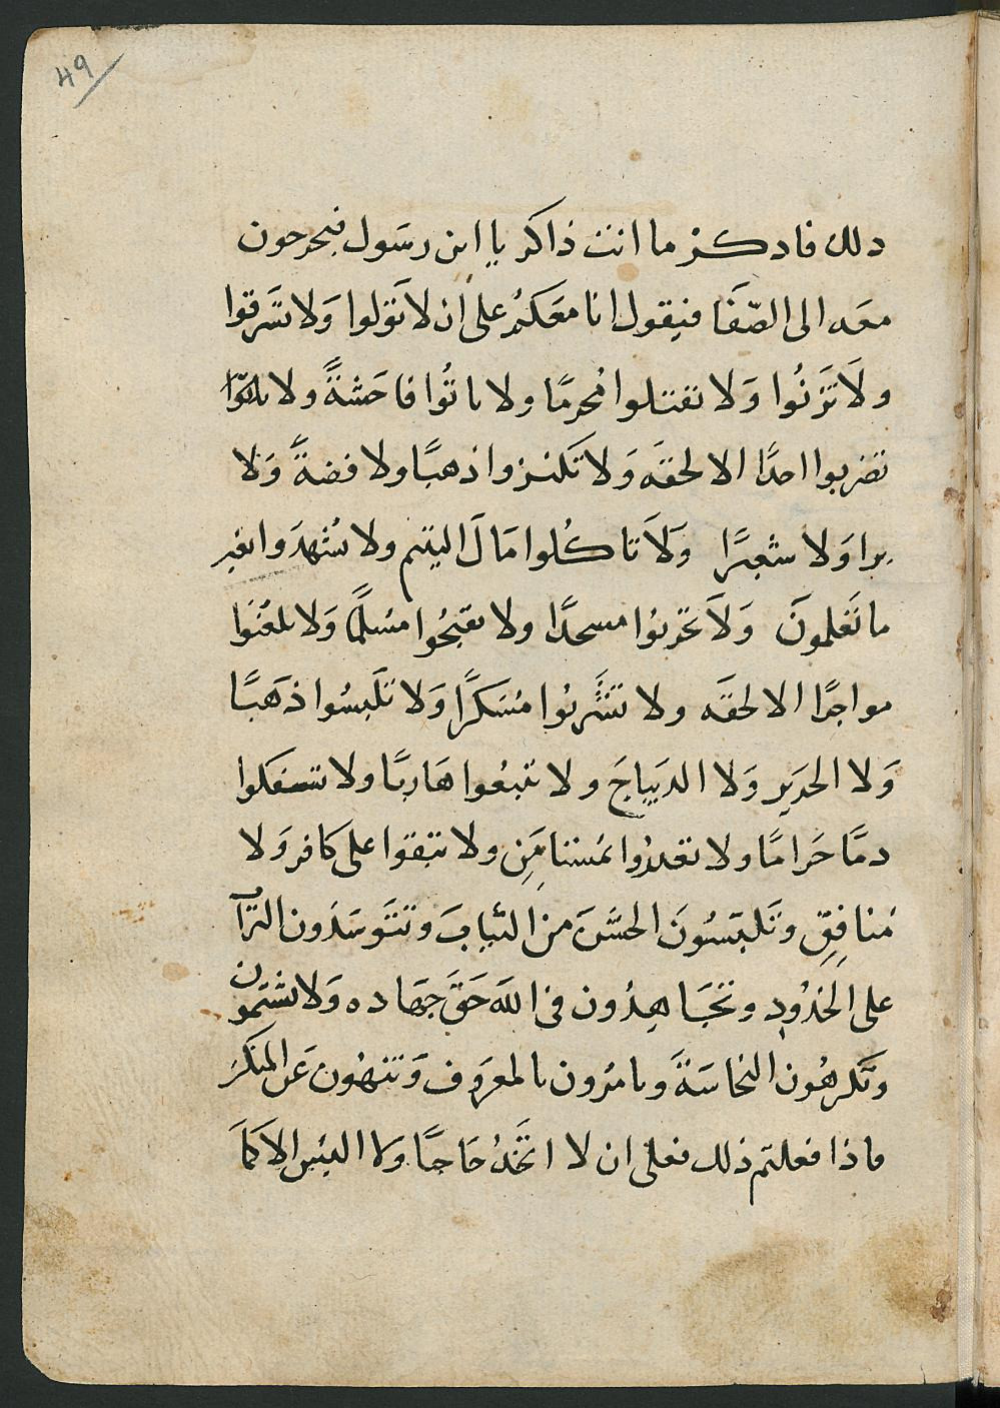 49
ذلك فاذكر ما انت ذاكر يا ابن رسَول فيخرجون
معَه الى الصّفَا فيقول انا معَكُم على ان لا تَوَلوا وَلا تسَرقوا
ولَا تَزنُوا وَلا تقتلوا مُحرمًا ولا تاتُوا فاحَشةً ولا
تضربوا احدًا الا لحقَه وَلا تكنزوا ذهبًا ولا فضةً وَلا
برا وَلا شعيرًا وَلَا تاكُلوا مَالَ اليتيم ولا تشْهدَوا بغير
ما تَعَلمونَ وَلَا تخربُوا مسجدًا ولا تقبحُوا مسُلمًا وَلا تلعنُوا
مواجرًا الا لحقَه ولا تشَربُوا مُسَكرًا وَلا تلَبسُوا ذهَبًا
وَلا الحرَير وَلا الديباجَ ولا تتبعُوا هَاربًا ولا تسفكوا
دمًا حَرامًا ولا تغدرُوا بمُستامَنِ ولا تبقوا على كافر وَلا
مُنافِقِ وتَلبسُونَ الخشَنَ من الثيابَ وتتوَسَدون التراب
على الخدُودِ وتجَاهِدُون في اللَه حَقَ جهَاده وَلا تشتمون
وتَكرهُون النجاسَةَ وتامرُون بالمعرَوف وَتنهُون عَن المنكَر
فاذا فعلتم ذلك فعلى ان لا اتخَذُ حَاجبًا ولا البس الا كمَا